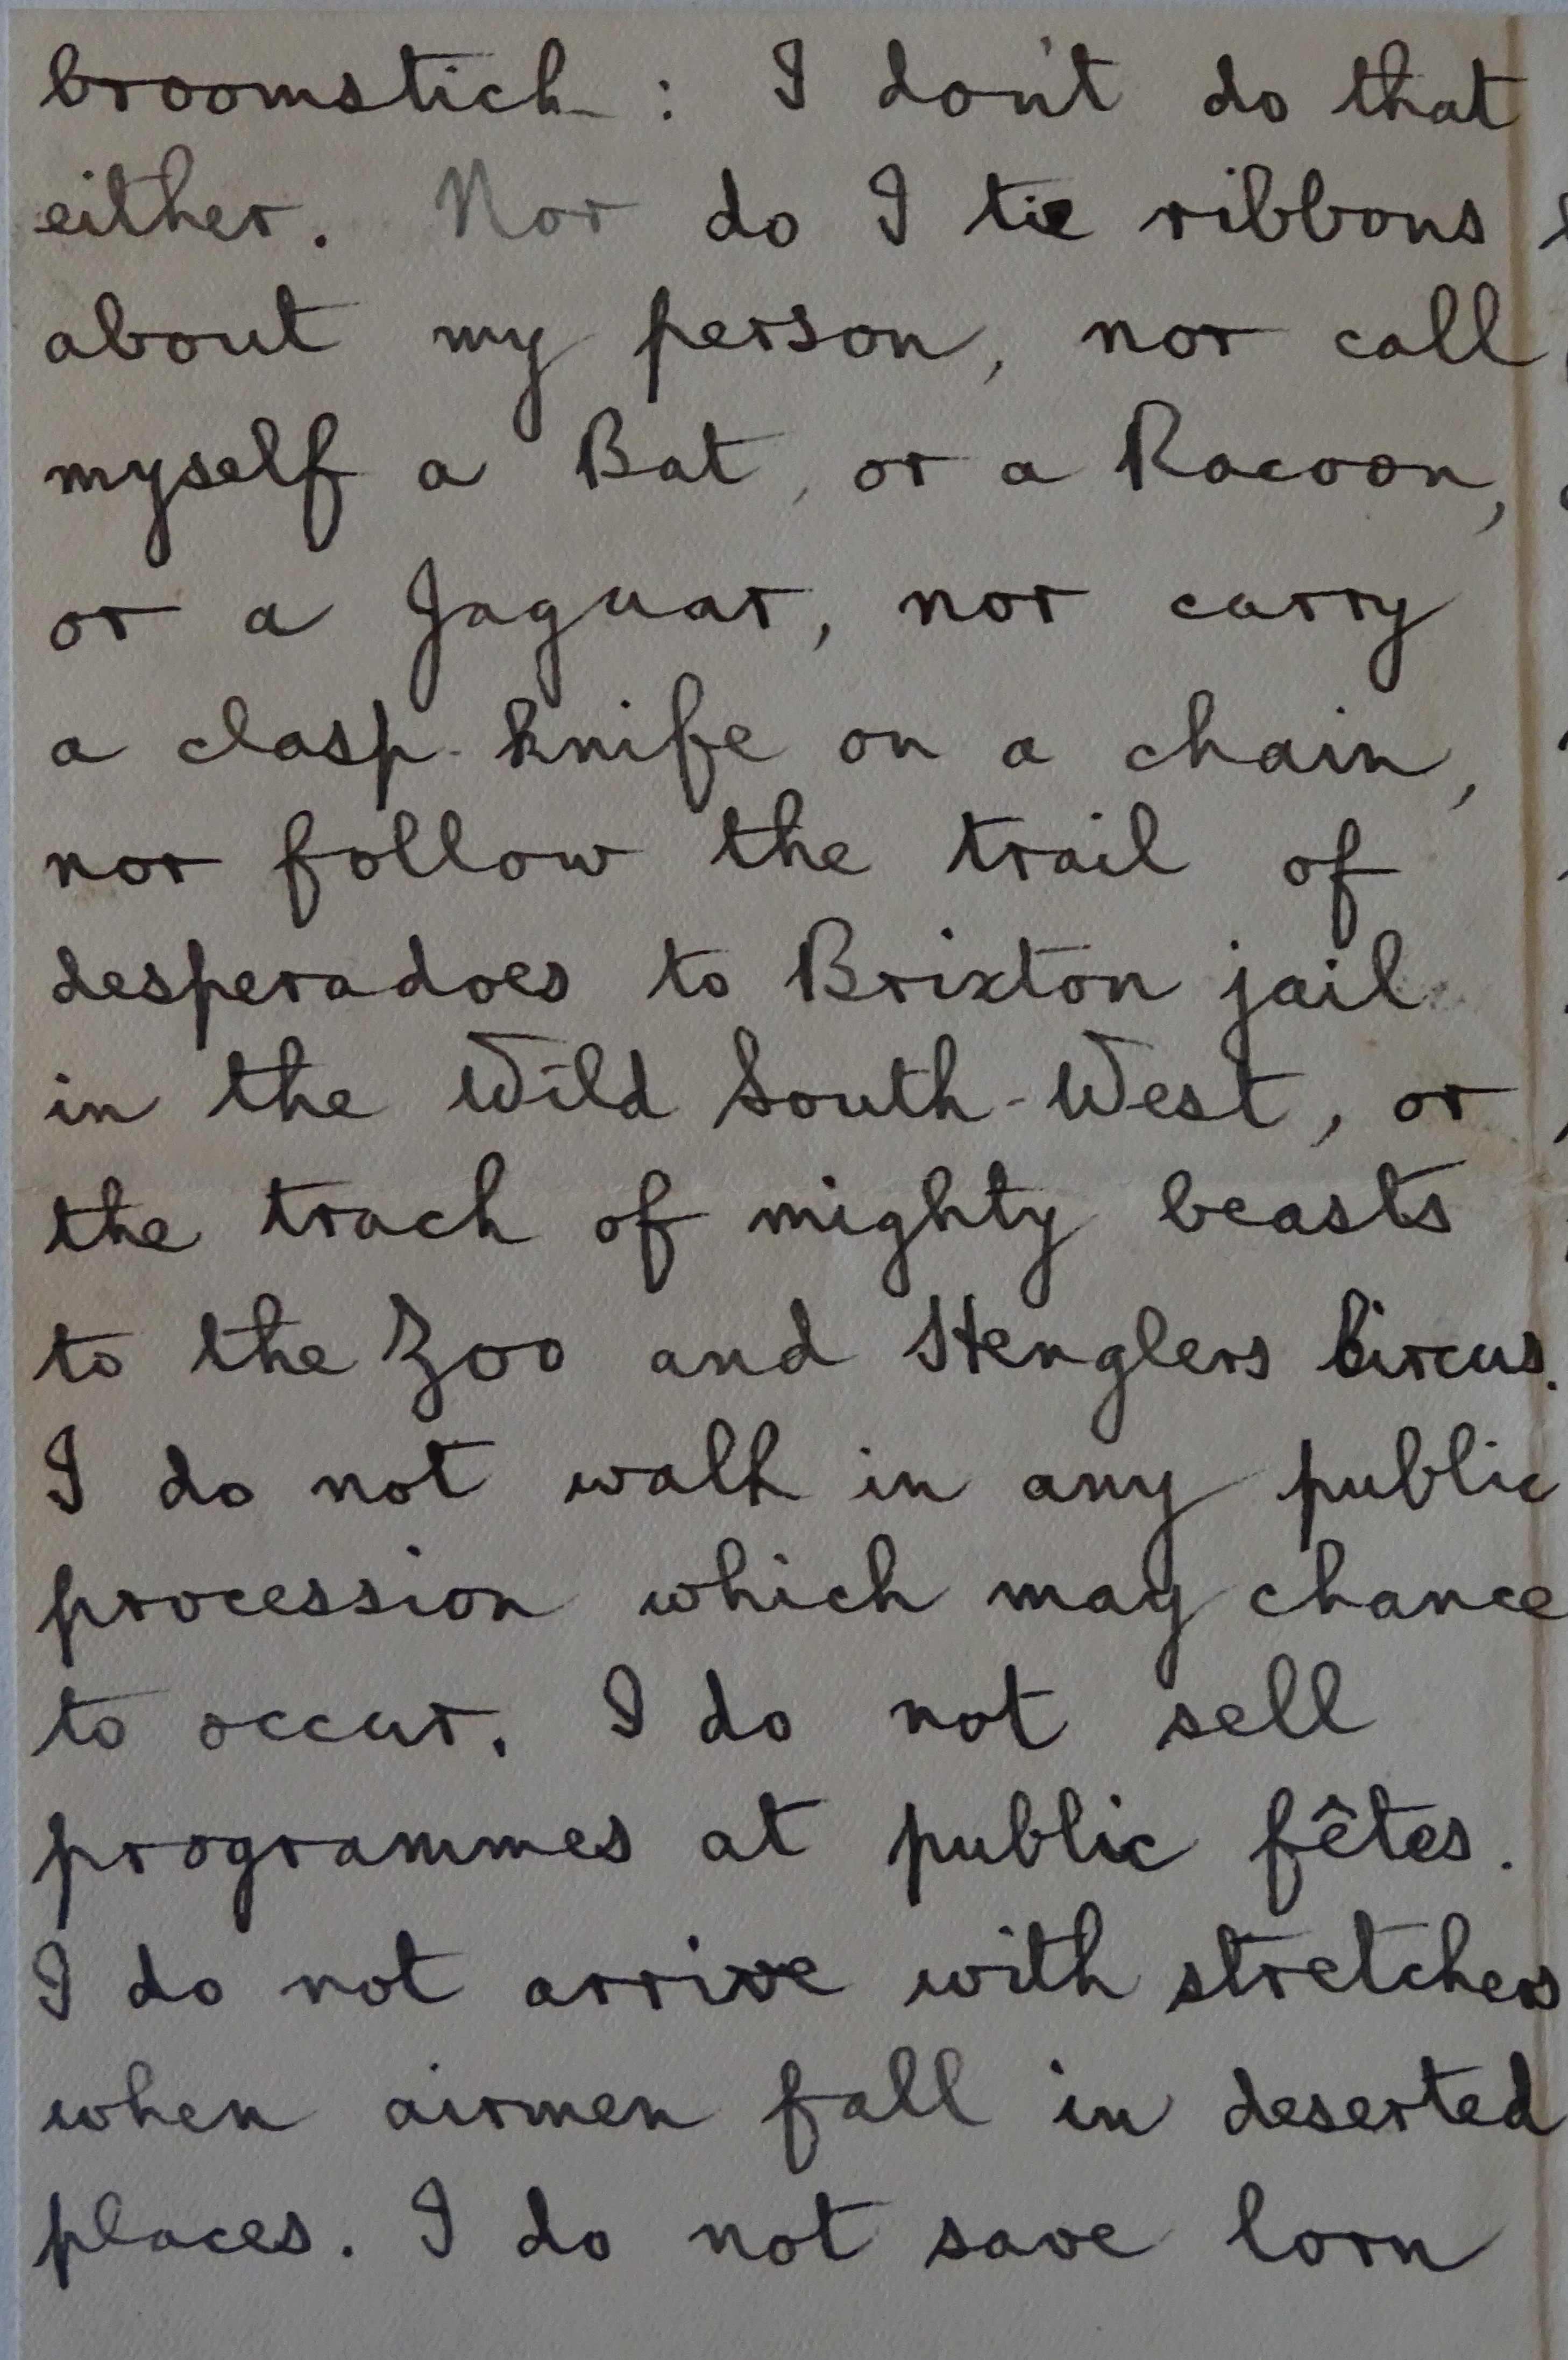 broomstick : I don't do that
either. Nor do I tie ribbons
about my person, nor call
myself a Bat, or a Racoon,
or a Jaguar, nor carry
a clasp-knife on a chain,
nor follow the trail of
desperadoes to Brixton jail
in the Wild South-West, or
the track of mighty beasts
to the Zoo and Henglers Circus.
I do not walk in any public
procession which may chance
to occur. I do not sell
programmes at public fêtes.
I do not arrive with stretchers
when airmen fall in deserted
places. I do not save lorn